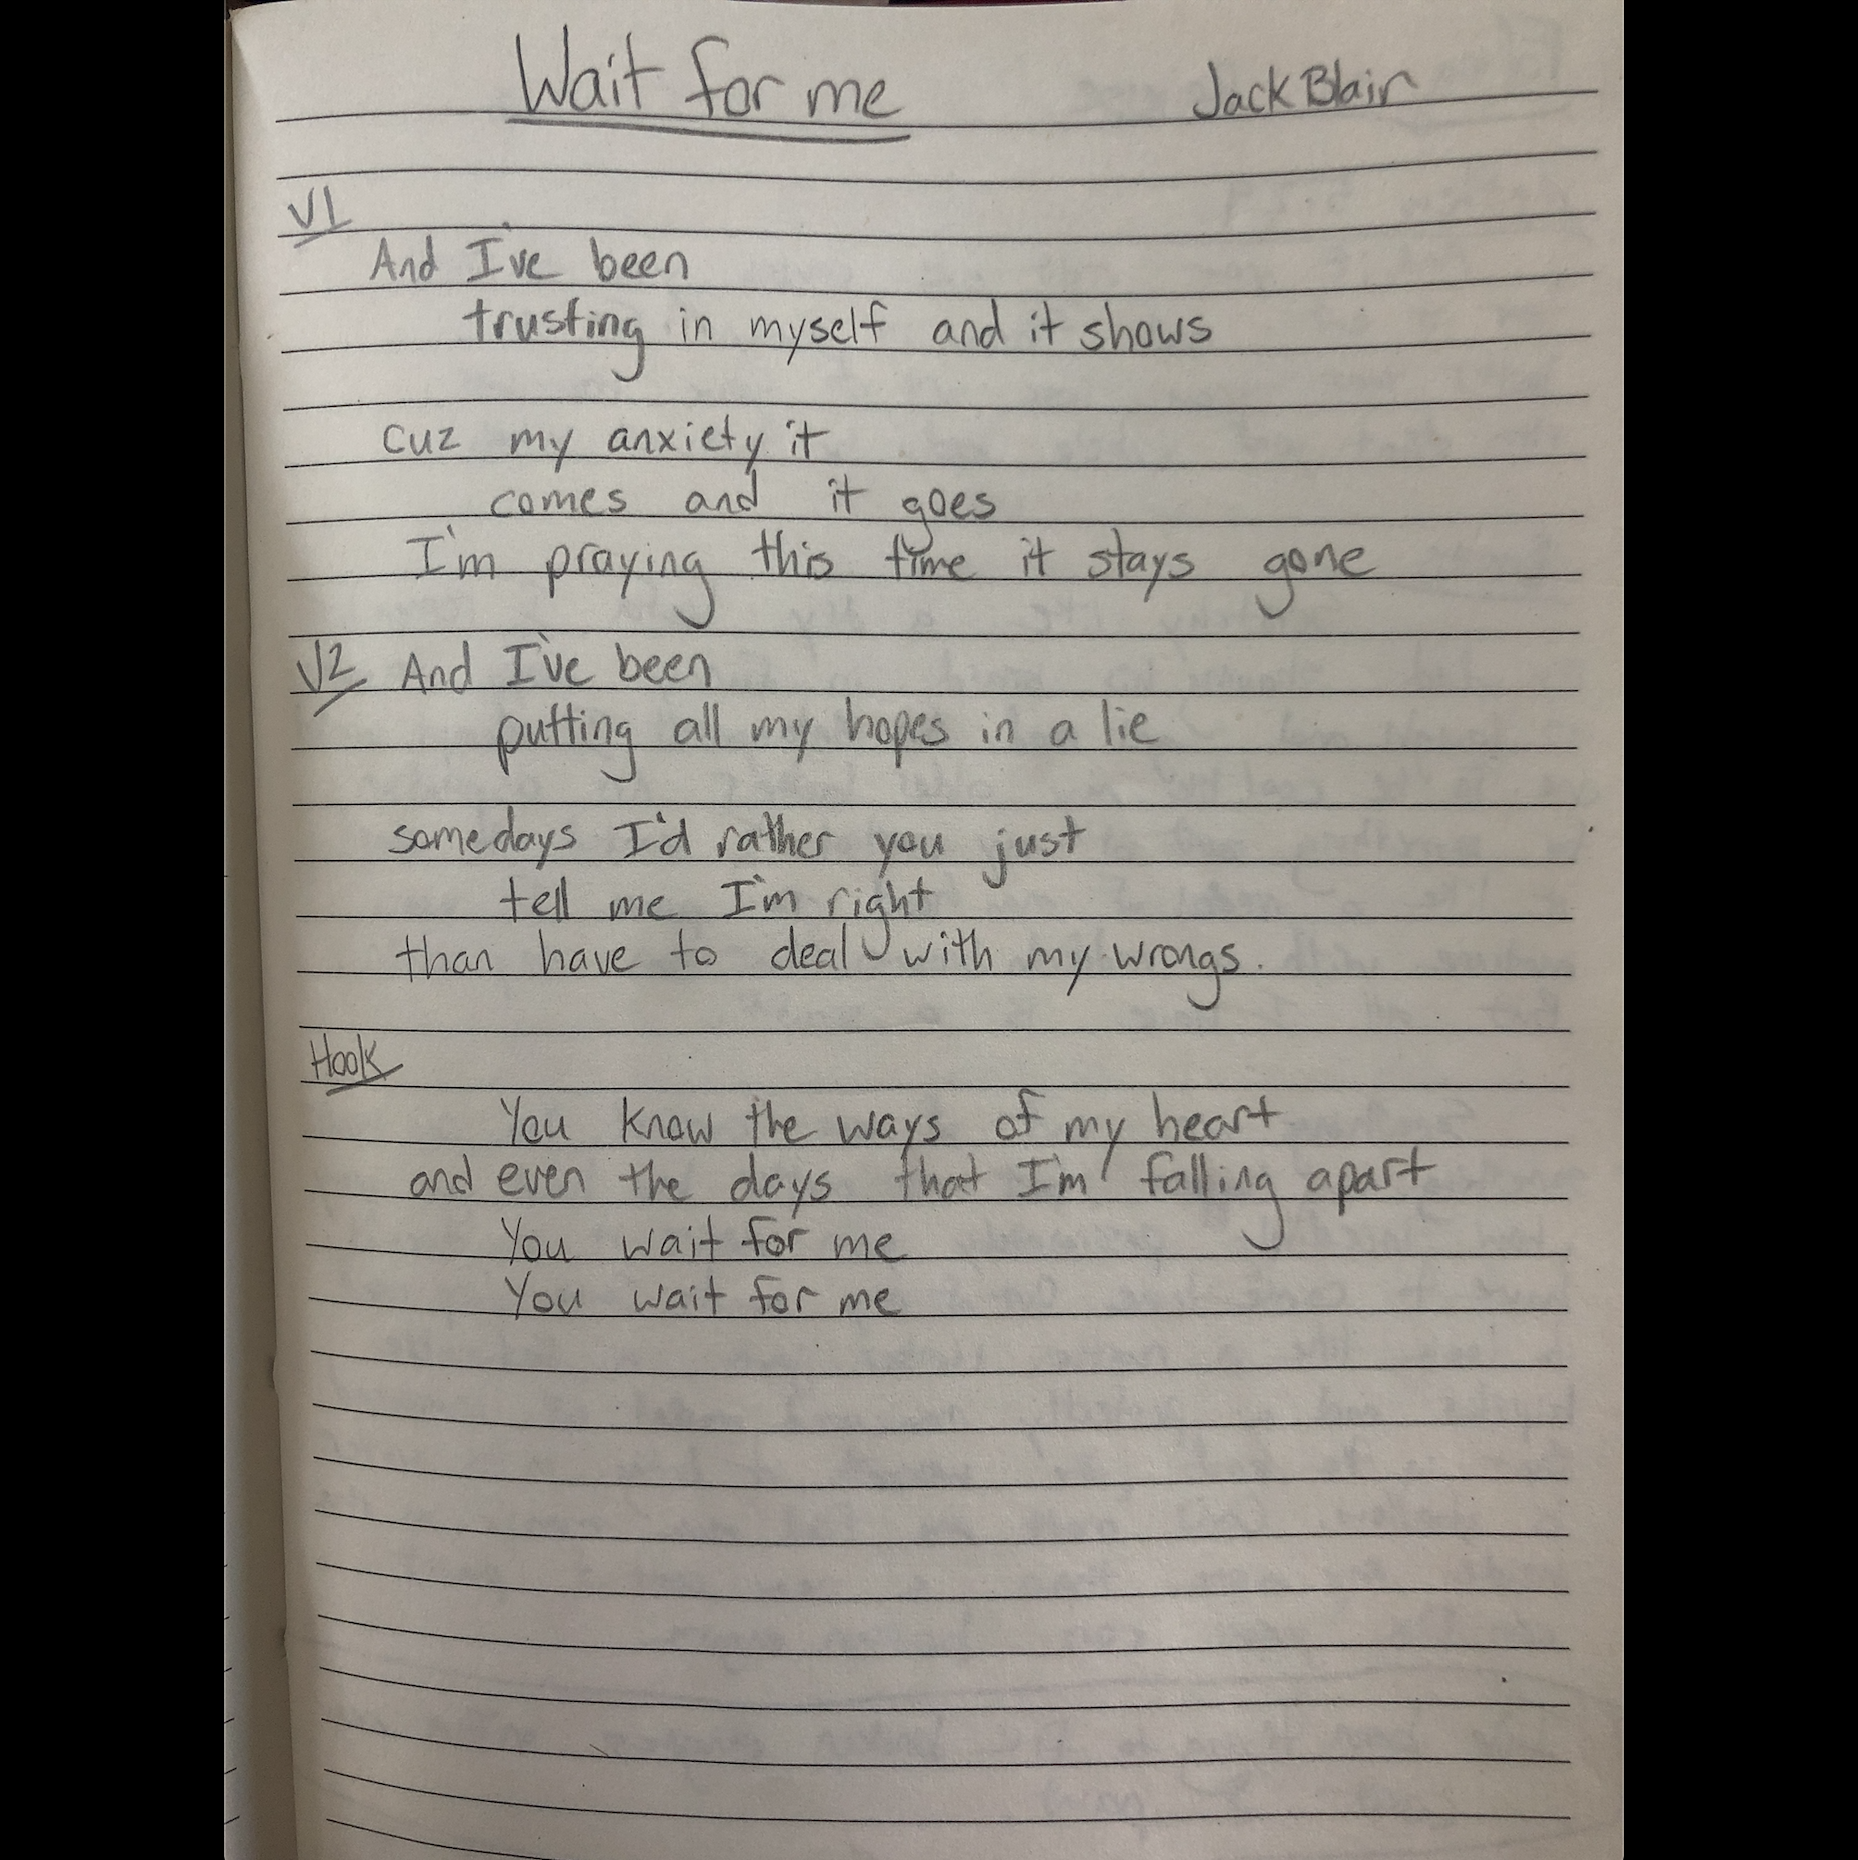 Wait for me Jack Blair
V1
And I've been
trusting in myself and it shows
cuz my anxiety it
comes and it goes
I'm praying this time it stays gone
V2 And I've been
putting all my hopes in a lie
somedays I'd rather you just
tell me I'm right
than have to deal with my wrongs.
Hook
You know the ways of my heart
and even the days that I'm falling apart
You wait for me
You wait for me